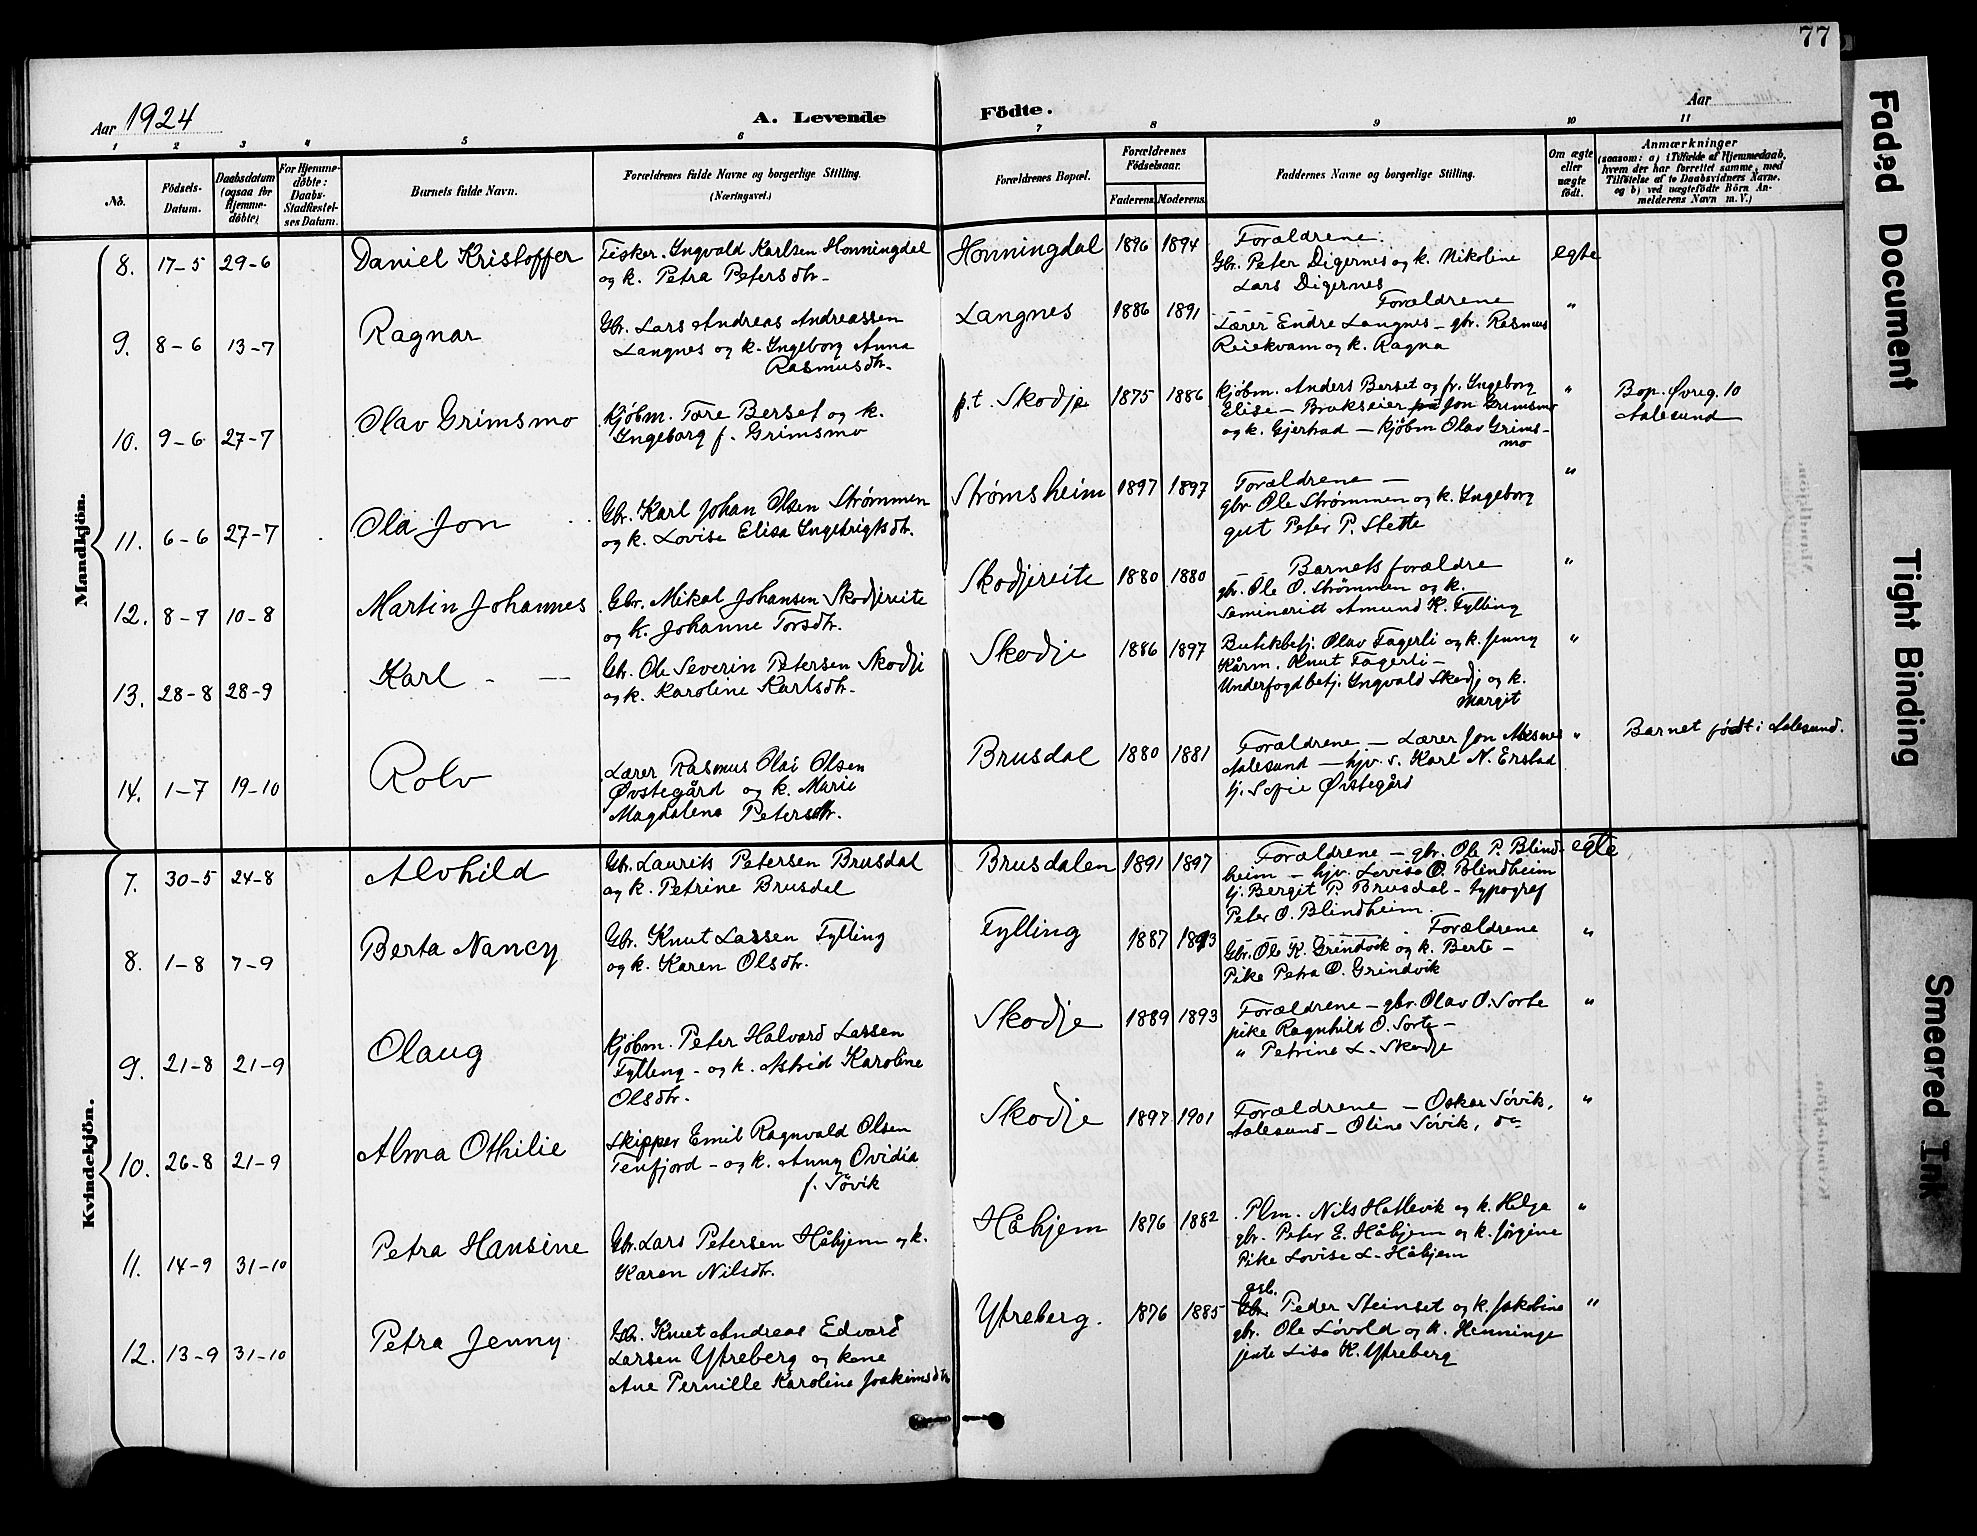 77
Aar 1924
A. Levende Födte.
Aar
1 2 3 4 5 6 7 8 9 10 11
No.
Födsels-Datum.
Daabsdatum (ogsaa for Hjemmedöbte)
For Hjemmedöbte: Daabs-Stadfæstelses Datum.
Barnets fulde Navn.
Forældrenes fulde Navne og borgerlige Stilling.
(Næringsvei.)
Forældrenes Bopæl.
Forældrenes Födselsaar.
Faderens Moderens
Faddernes Navne og borgerlige Stilling.
Om ægte eller uægte födt.
Anmærkninger
(saasom: a) i Tilfælde af Hjemmedaab,
hvem der har forrettet samme, med
Tilföielse af to Daabsvidners Navne.
og b) ved uægtefödte Börn An-
melderens Navn m. V.)
Mandkjön.
8. 17-5 29-6 Daniel Kristoffer
Fisker. Ingvald Karlsen Honningdal
og k. Petra Petersdtr.
Honningdal 1896 1894
Forældrene.
Gbr. Peter Digernes og k. Nikoline
Lars Digernes
egte
9. 8-6 13-7 Ragnar
Gbr. Lars Andreas Andreassen
Langnes og k. Ingeborg Anna
Rasmusdtr.
Langnes 1886 1891
Forældrene
Lærer Endre Langnes - gbr. Rasmus
Reiekvam og k. Ragna
"
10. 9-6 27-7 Olav Grimsmo
Kjøbm. Tore Berset og k.
Ingeborg f. Grimsmo
p.t. Skodje 1875 1886
Kjøbm. Anders Berset og fr. Ingeborg
Elise - Brukseier Jon Grimsmo
og k. Gjertrud - kjøbm Olav Grims-
mo
"
Bop. Øvreg. 10
Aalesund
11. 6-6 27-7 Ola Jon
Gbr. Karl Johan Olsen Strømmen
og k. Lovise Elisa Ingebrigtsdtr.
Strømsheim 1897 1897
Forældrene -
gbr Ole Strømmen og k. Ingeborg
gut Peter P. Stette
"
12. 8-7 10-8 Martin Johannes
Gbr. Mikal Johansen Skodjereite
og k. Johanne Torsdtr.
Skodjereite 1880 1880
Barnets forældre
gbr. Ole O. Strømmen og k.
Seminarist Amund K. Fylling
"
13. 28-8 28-9 Karl
Gbr. Ole Severin Petersen Skodje
og k. Karoline Karlsdtr.
Skodje 1886 1897
Butikbetj. Olav Fagerli og k. Jenny
Knut Fagerli -
Underfogdbetj. Ingvald Skodj og k.
Margit
"
14. 1-7 19-10 Rolv
Lærer Rasmus Olai Olsen
Øvstegård og k. Marie
Magdalena Petersdtr.
Brusdal 1880 1881
Forældrene - Lærer Jon
Aalesund - hjv. s. Karl N. Erstad
tj. Sofie Øvstegård
"
Barnet født i Aalesund.
Kvindekjön.
7. 30-5 24-8 Alvhild
Gbr. Laurits Petersen Brusdal
og k. Petrine Brusdal
Brusdalen 1891 1897
Forældrene - gbr. Ole P. Blind-
heim - hjv. Lovise O. Blindheim
tj. Bergit P. Brusdal - typograf
Peter O. Blindheim.
egte
8. 1-8 7-9 Berta Nancy
Gbr. Knut Lassen Fylling
og k. Karen Olsdtr.
Fylling 1887 1893
Forældrene
Gbr. Ole K. Grindvik og k. Berte -
Pike Petra O. Grindvik
"
9. 21-8 21-9 Olaug
Kjøbm. Peter Halvard Lassen
Fylling - og k. Astrid Karoline
Olsdtr.
Skodje 1889 1893
Forældrene - gbr. Olav O. Sorte
pike Ragnhild O. Sorte -
" Petrine L. Skodje
"
10. 26-8 21-9 Alma Othilie
Skipper Emil Ragnvald Olsen
Tenfjord - og k. Anny Ovidia
f. Søvik
Skodje 1897 1901
Forældrene - Oskar Søvik,
Aalesund - Oline Søvik, do
"
11. 14-9 31-10 Petra Hansine
Gbr. Lars Petersen Håhjem og k.
Karen Nilsdtr.
Håhjem 1876 1882
Plm. Nils Hatlevik og k. Helga
gbr. Peter E. Håhjem og k. Jørgine
Pike Lovise L. Håhjem
"
12. 13-9 31-10 Petra Jenny
Gbr. Knut Andreas Edvard
Larsen Ytreberg og kone
Ane Pernille Karoline Joakimsdtr
Ytreberg. 1876 1885
Peder Steinset og k. Jakobine
gbr. Ole Løvold og k. Henninge
jente Lisa K. Ytreberg
"
Faded Document
Tight Binding
Smeared Ink